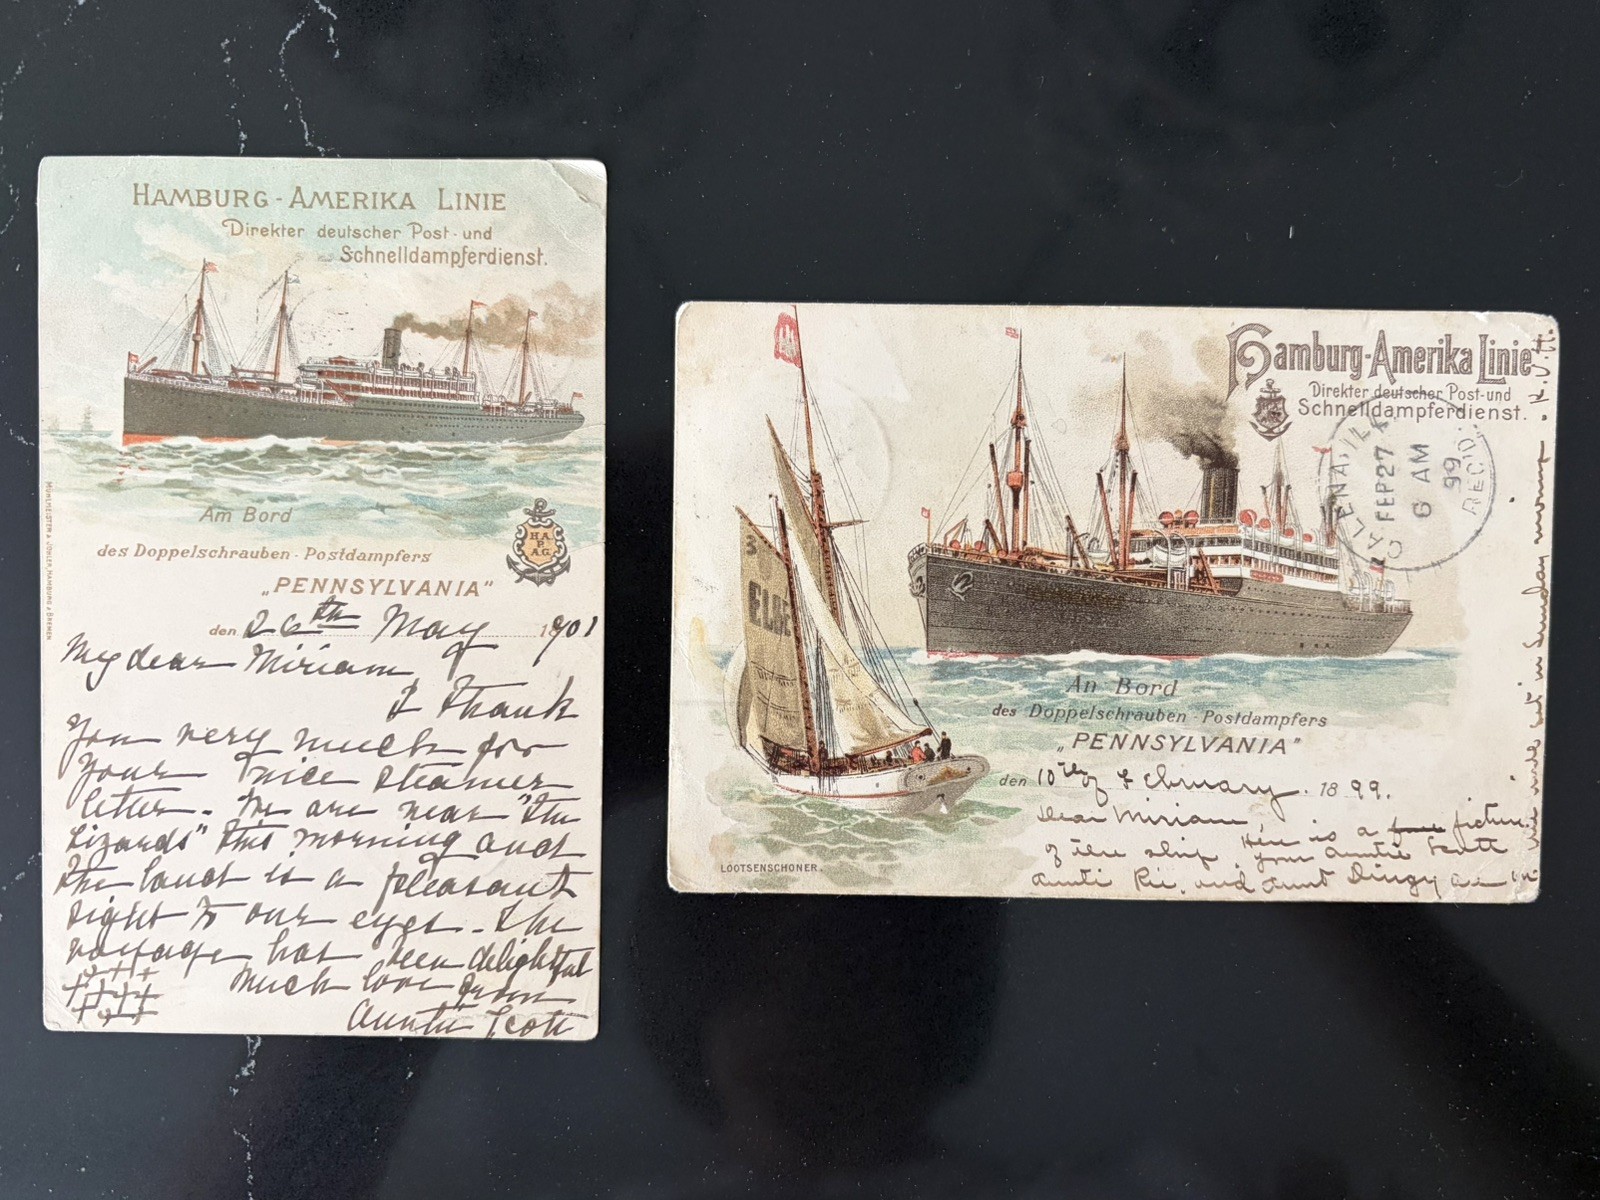 HAMBURG-AMERIKA LINIE
Direkter deutscher Post- und
Schnelldampferdienst.
Am Bord
H.A.
P.
A.G.
des Doppelschrauben-Postdampfers
„PENNSYLVANIA"
den 26th May 1901
MÜHLMEISTER & JOHLER, HAMBURG & BREMEN
My dear Miriam,
I thank
you very much for
your nice steamer
letter - We are near "the
Lizards" this morning and
the land is a pleasant
sight to our eyes - The
voyage has been delightful
Much love from
Auntie Scott
Hamburg-Amerika Linie
Direkter deutscher Post- und
Schnelldampferdienst.
FEB 27
6 AM
99
REC'D.
3
ELBE
An Bord
des Doppelschrauben-Postdampfers
„PENNSYLVANIA"
den 10th of February. 1899.
Dear Miriam,
Here is a picture
of the ship. your Auntie Scott
Auntie Rie, and Aunt Dingy are in
and will set in Sunday morning
LOOTSENSCHONER.